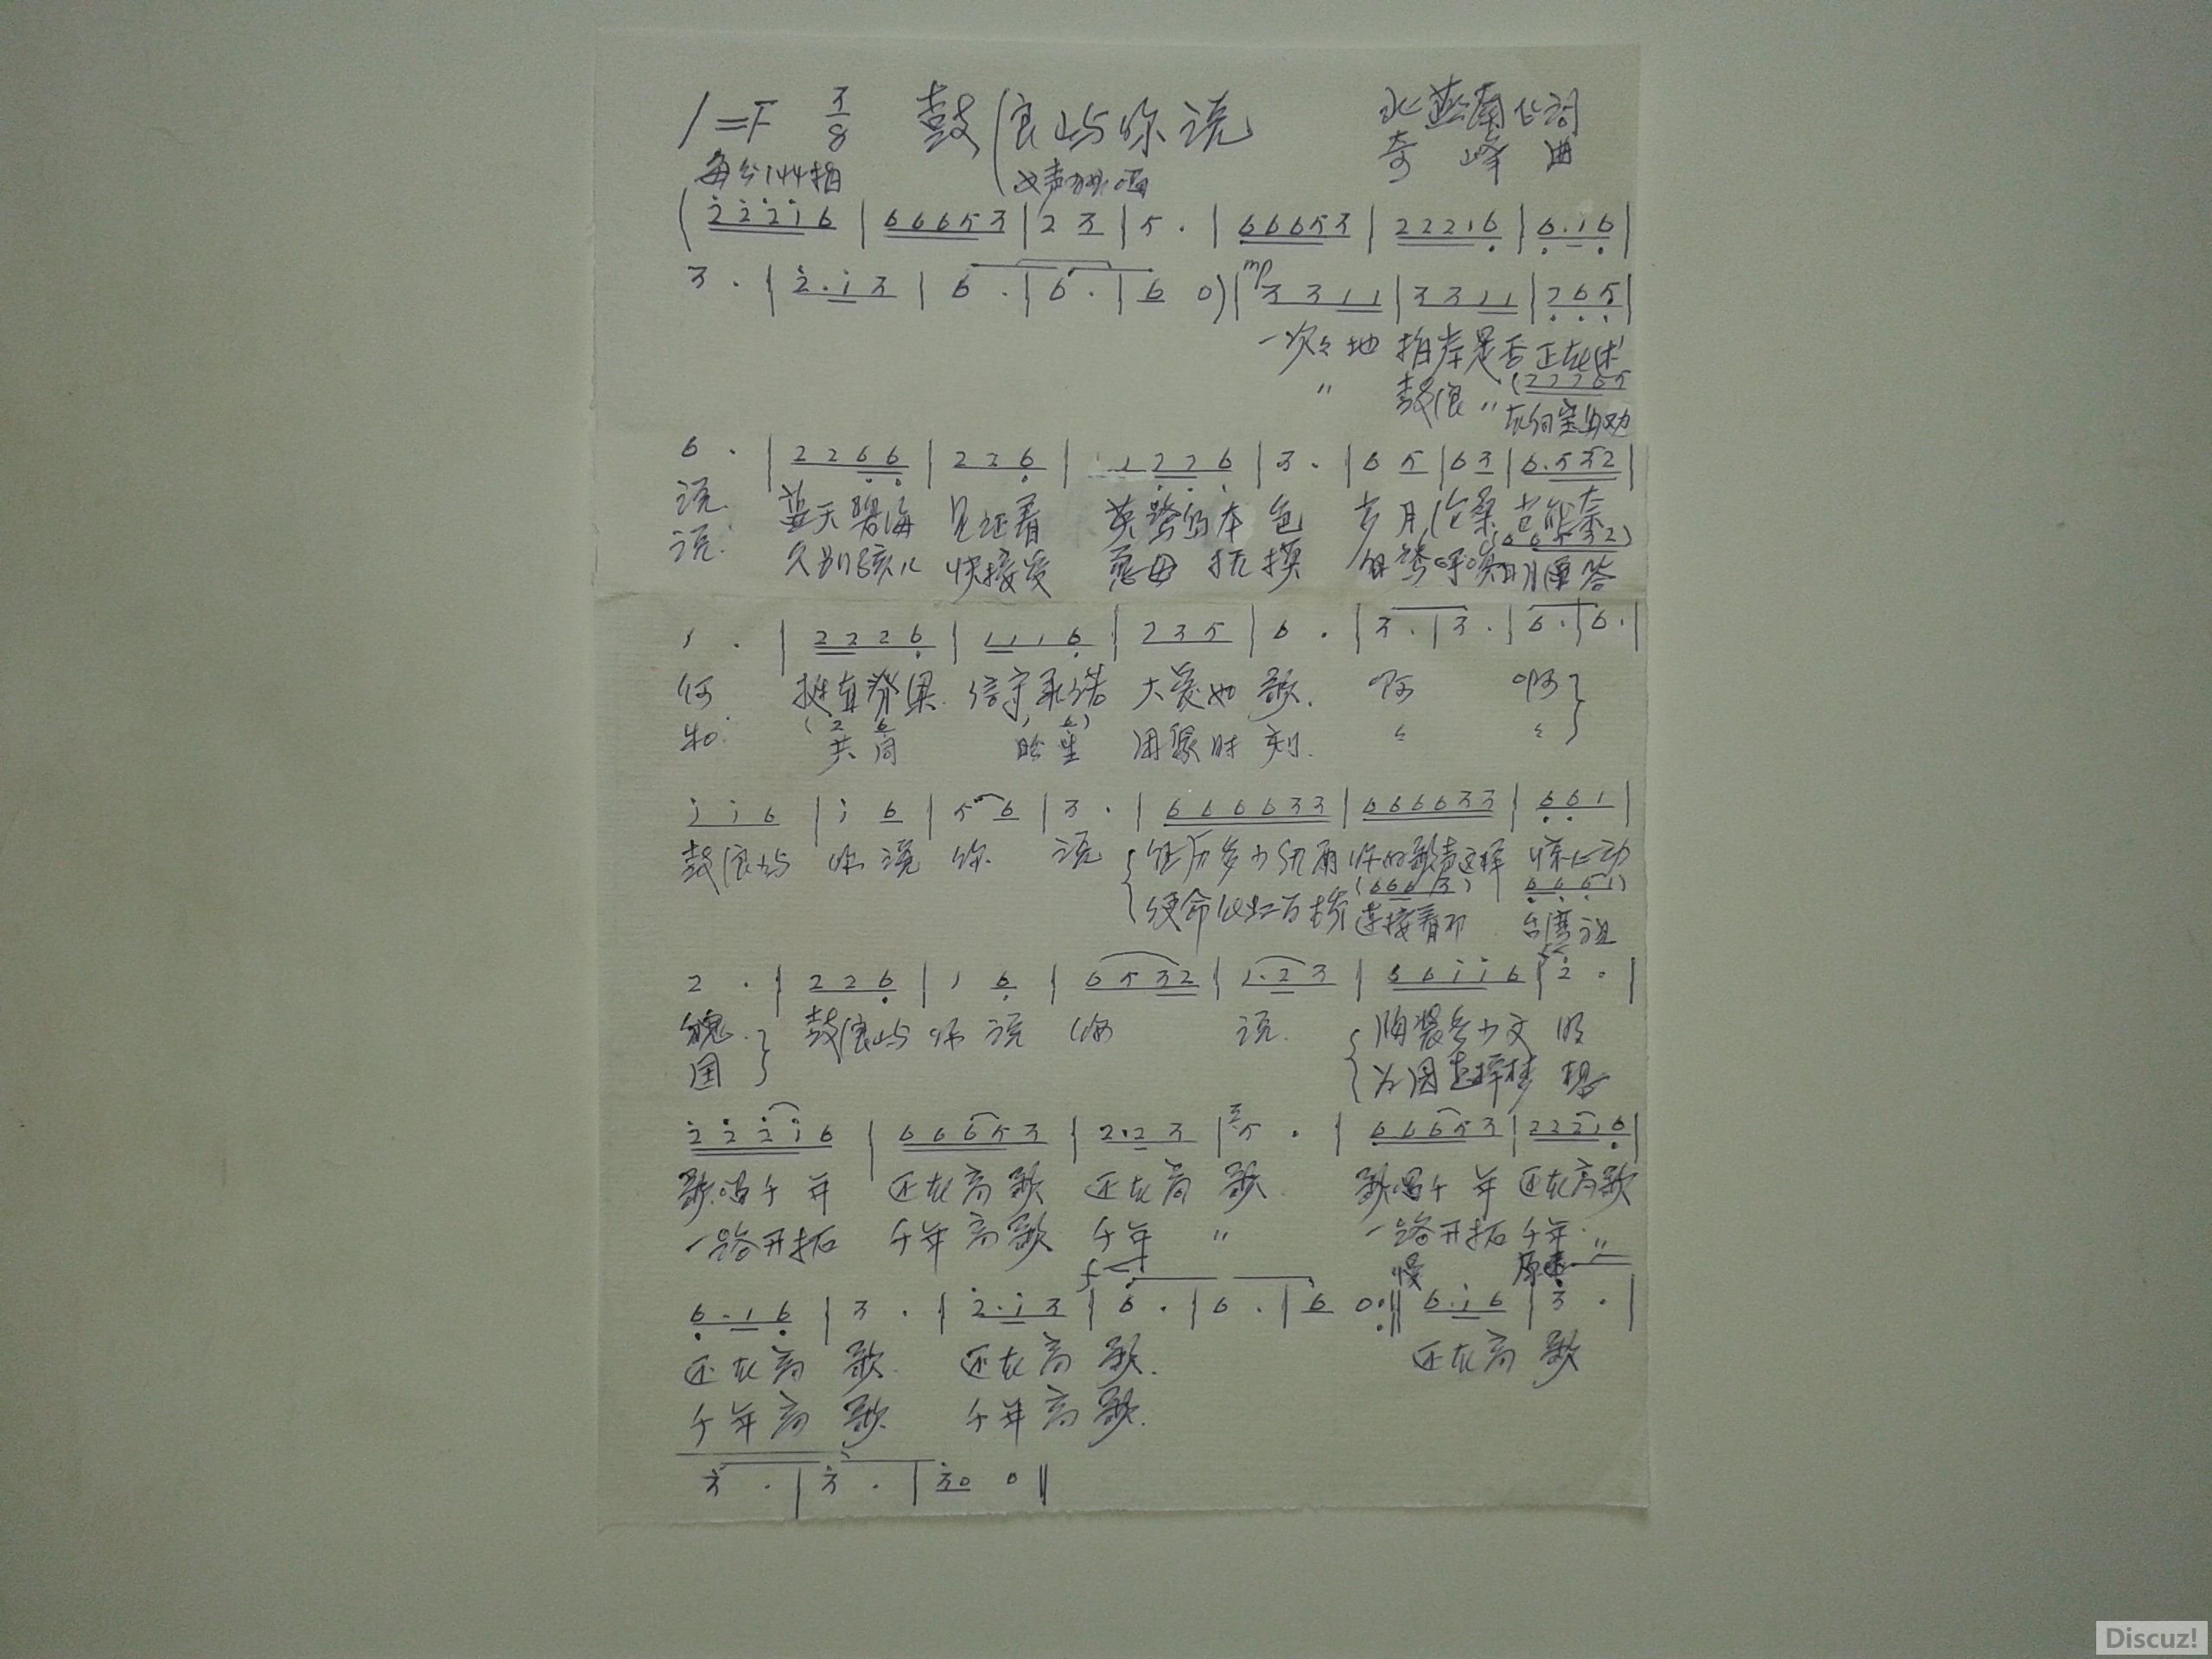 1=F 3/8 鼓浪屿你说 北燕南飞词
每分144拍 女声独唱 奇峰 曲
( 2̇ 2̇ 2̇ 1̇ 6 | 6 6 6 5 3 | 2 3 | 5 · | 6 6 6 5 3 | 2 2 2 1 6̣ | 6̣ · 1 6̣ |
3 · | 2̇ · 1̇ 3 | 6 · | 6 · | 6 0 ) | mp 3 3 1 1 | 3 3 1 1 | 7̣ 6̣ 5̣ |
一次々地 拍岸是否 正在述
〃 鼓浪 〃 (2 2 2 6 5
在向宝岛劝
6 · | 2 2 6̣ 6̣ | 2 2 6̣ | 1 7̣ 7̣ 6̣ | 3 · | 6 5 | 6 3 | 6 · 5 3 2 |
说 蓝天碧海 见证着 英雄的本 色 岁月沧桑 岂能奈
说: 久别孩儿 快接受 慈母 抚摸 (6 6 5 3 2)
1 · | 2 2 2 6̣ | 1 1 1 6̣ | 2 3 5 | 6 · | 3 · | 3 · | 6 · | 6 · |
何 挺直脊梁 信守承诺 大爱如 歌. 啊 啊
(2 6 1 6)
共同 时刻.
1̇ 1̇ 6 | 1̇ 6 | 5 6 | 3 · | 6 6 6 6 3 3 | 6 6 6 6 3 3 | 6̣ 6̣ 1 |
鼓浪屿 你 说 你 说 经历多少风雨 你的歌声这样 惊心动
(6 6 6 3) (6̣ 6̣ 6̣ 1)
使命 连接着 台湾 祖
2 · | 2 2 6̣ | 1 6̣ | 6 5 3 2 | 1 · 2 3 | 6 6 1̇ 1̇ 6 | 2̇ · |
魄 鼓浪屿 你 说 你 说
国
2̇ 2̇ 2̇ 1̇ 6 | 6 6 6 5 3 | 2 · 2 3 | 5 · | 6 6 6 5 3 | 2 2 2 1 6̣ |
歌唱千年 还在高歌 还在高 歌 歌唱千年 还在高歌
一路开拓 千年高歌 千年 〃 一路开拓 千年 〃
f 慢 原速
6̣ · 1 6̣ | 3 · | 2̇ · 1̇ 3 | 6 · | 6 · | 6 0 :‖ 6 · 1̇ 6 | 3̇ · |
还在高 歌 还在高 歌. 还在高 歌
千年高 歌 千年高 歌.
3̇ · | 3̇ · | 3̇ 0 0 ‖
Discuz!